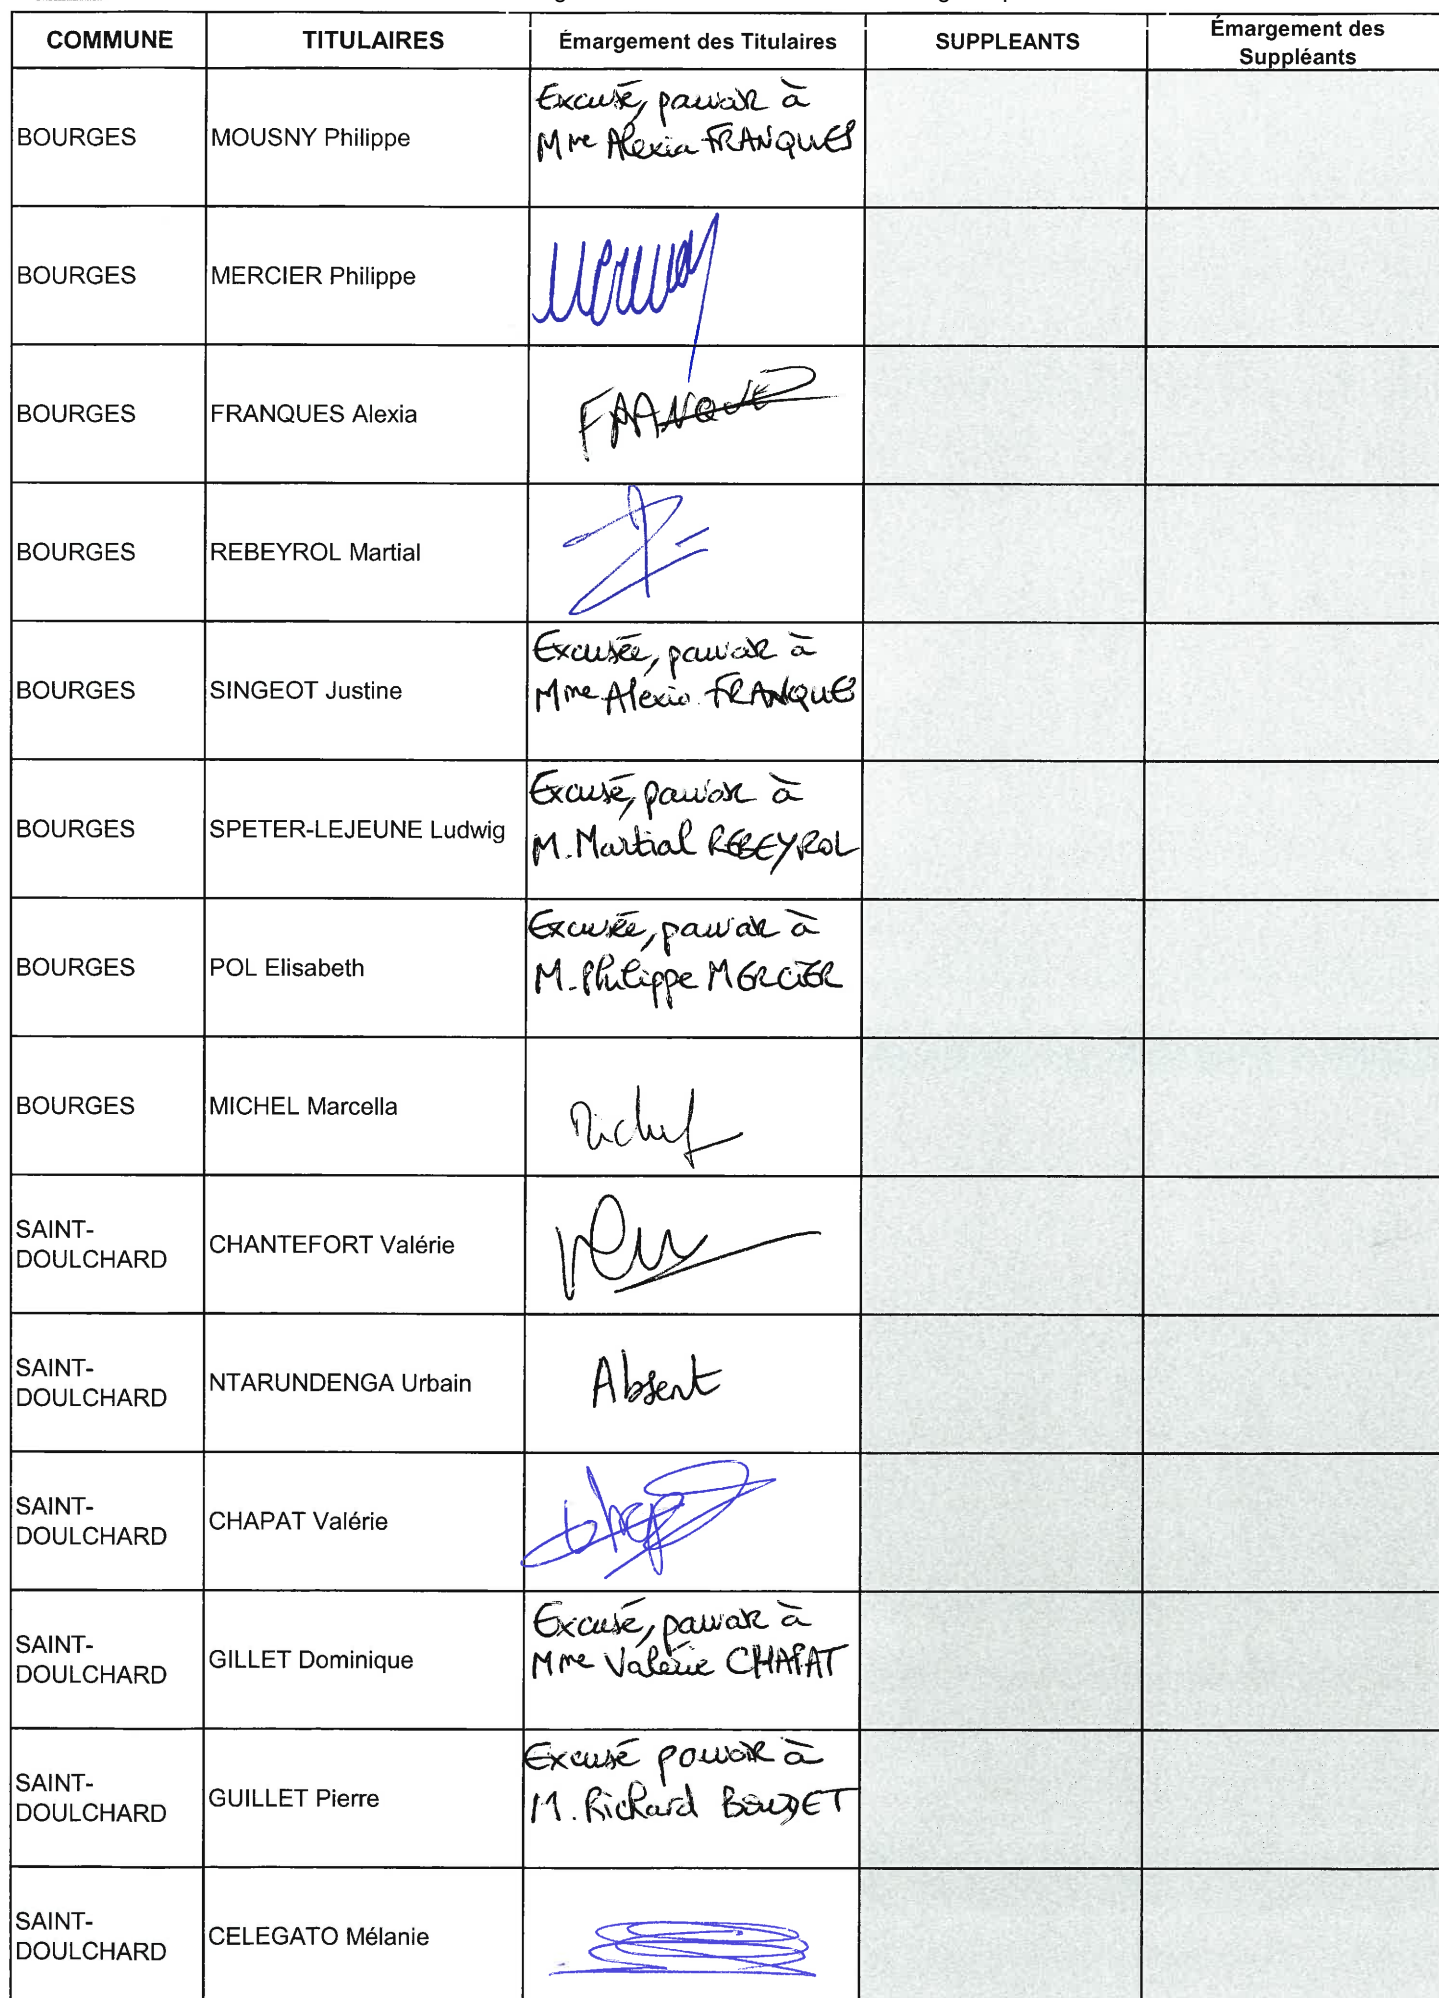 COMMUNE TITULAIRES Émargement des Titulaires SUPPLEANTS Émargement des
Suppléants
BOURGES MOUSNY Philippe Excusé, pouvoir à
Mme Alexia FRANQUES
BOURGES MERCIER Philippe
BOURGES FRANQUES Alexia FRANQUES
BOURGES REBEYROL Martial
BOURGES SINGEOT Justine Excusée, pouvoir à
Mme Alexia FRANQUES
BOURGES SPETER-LEJEUNE Ludwig Excusé, pouvoir à
M. Martial REBEYROL
BOURGES POL Elisabeth Excusée, pouvoir à
M. Philippe MERCIER
BOURGES MICHEL Marcella Michel
SAINT-
DOULCHARD CHANTEFORT Valérie
SAINT-
DOULCHARD NTARUNDENGA Urbain Absent
SAINT-
DOULCHARD CHAPAT Valérie
SAINT-
DOULCHARD GILLET Dominique Excusé, pouvoir à
Mme Valérie CHAPAT
SAINT-
DOULCHARD GUILLET Pierre Excusé pouvoir à
M. Richard BOUDET
SAINT-
DOULCHARD CELEGATO Mélanie